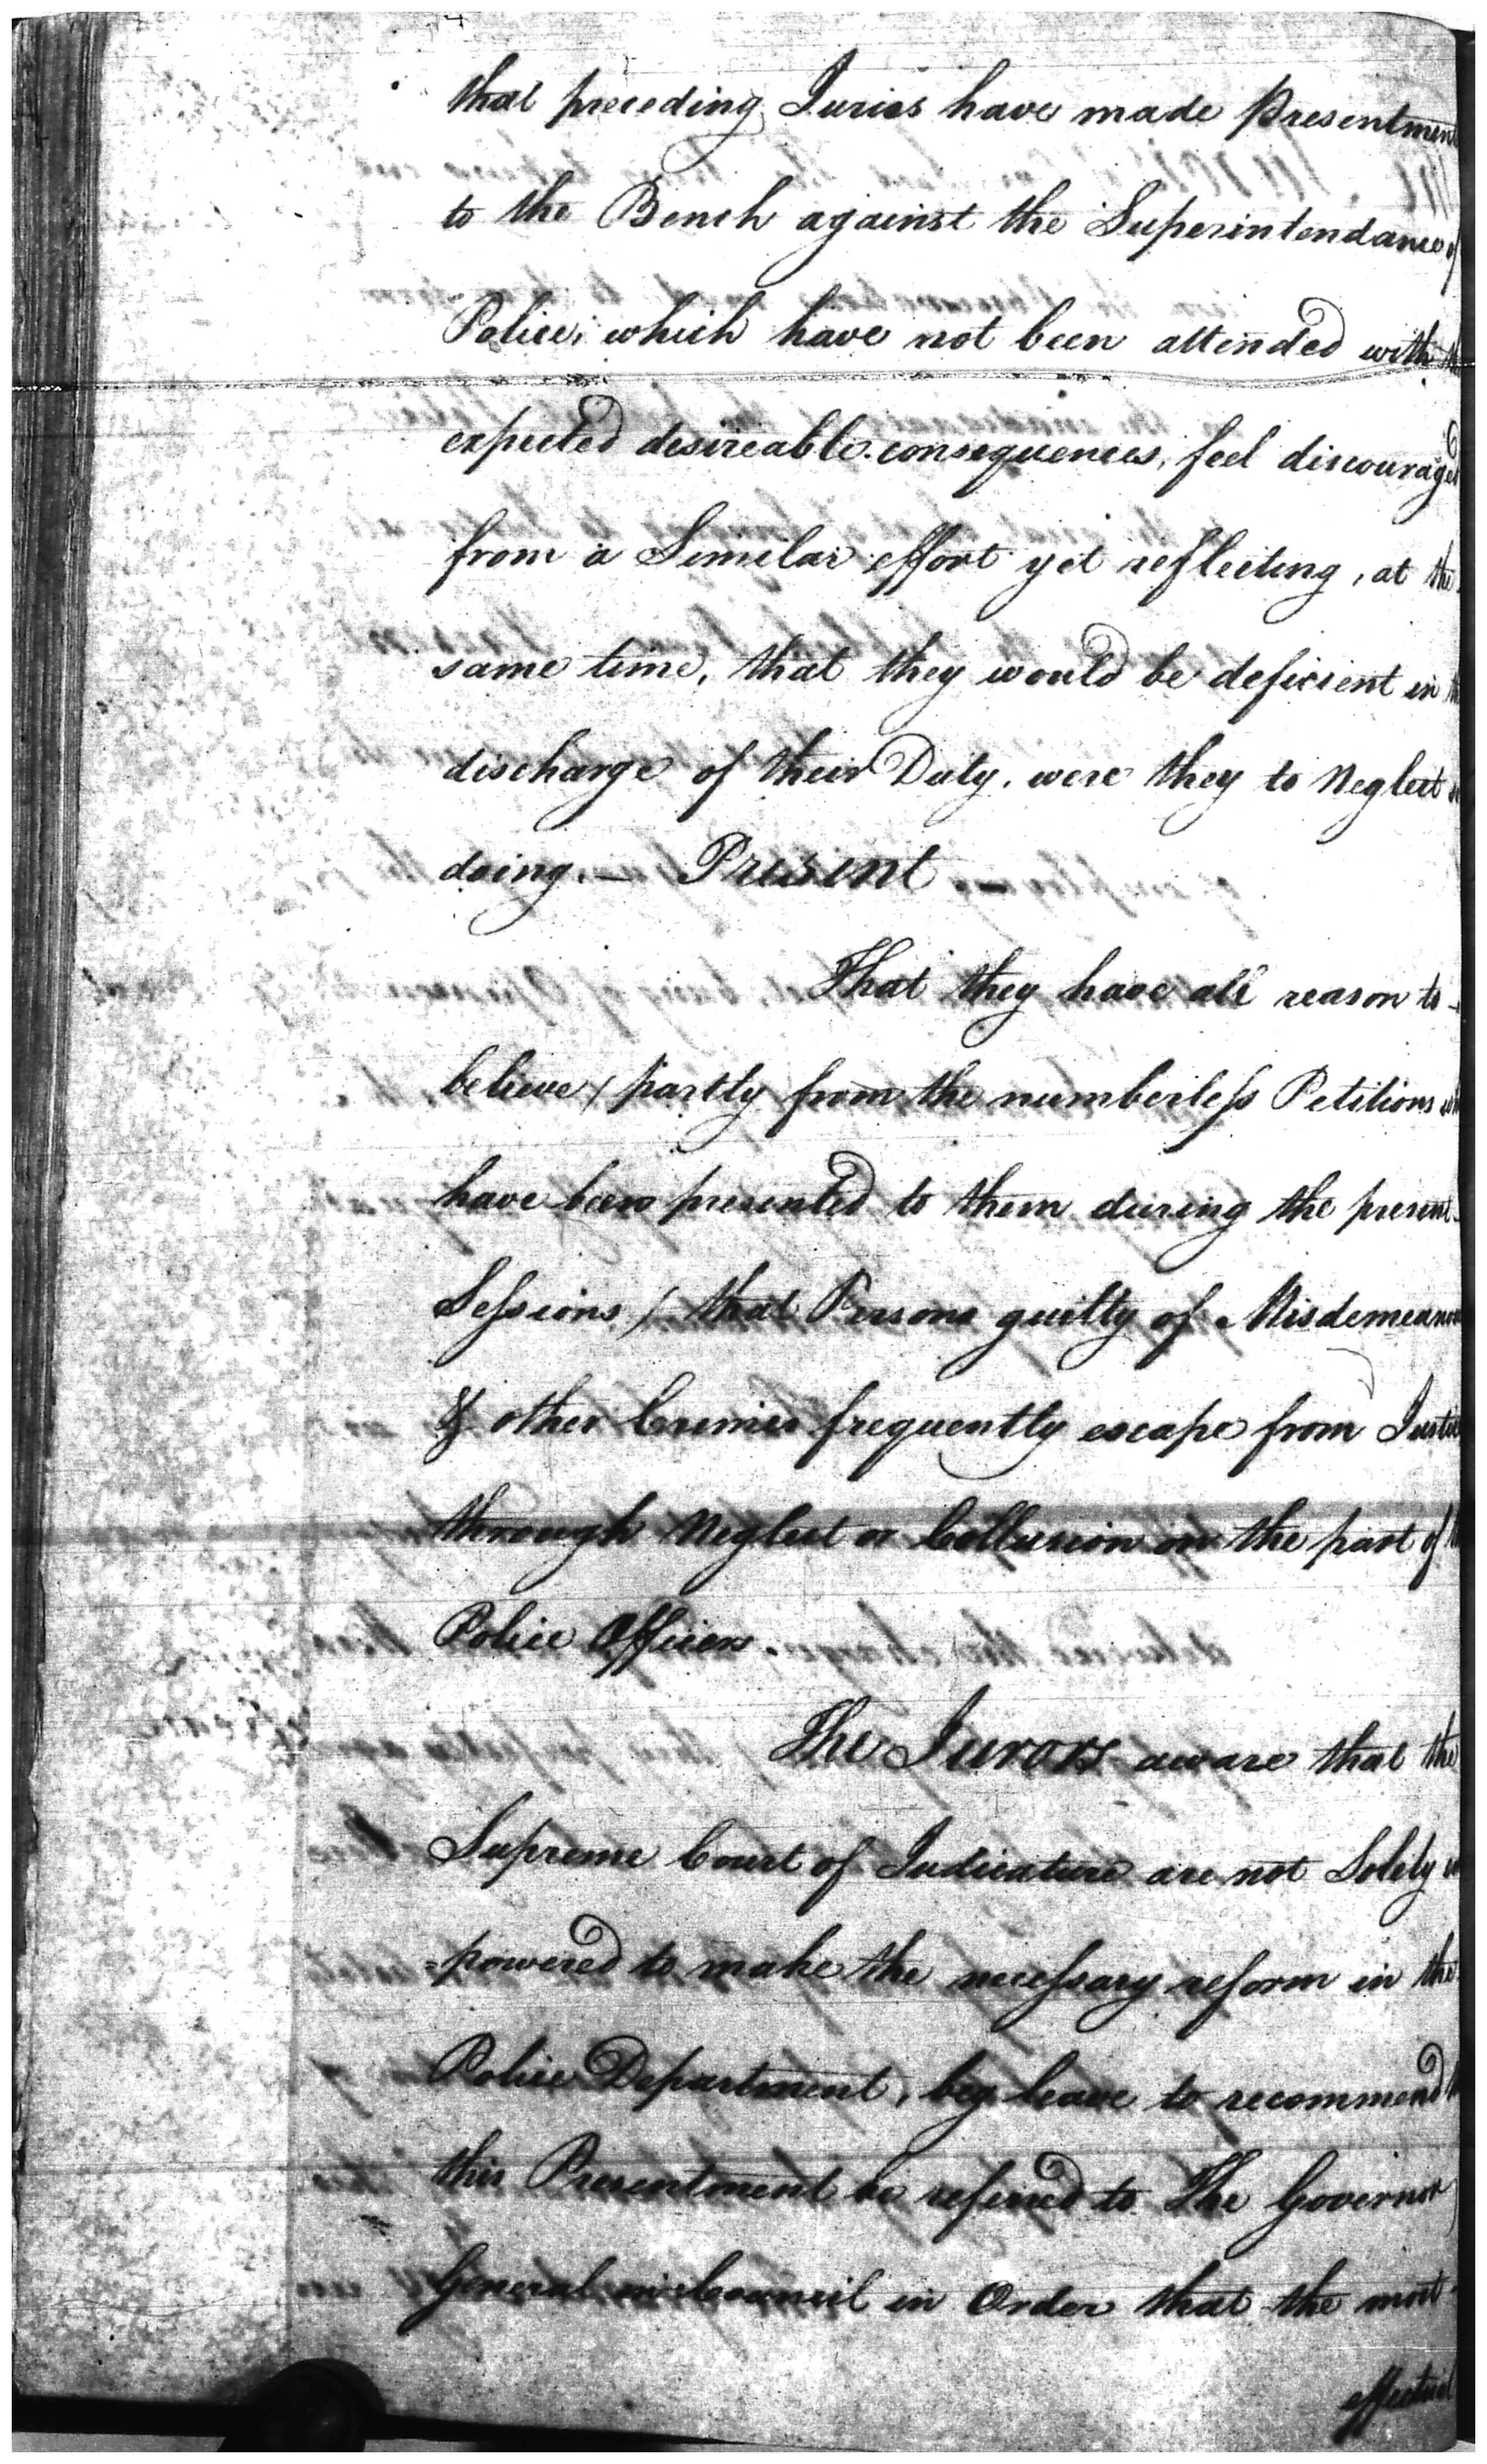 that preceding Juries have made Presentment
to the Bench against the Superintendance of
Police; which have not been attended with
expected desireable consequences, feel discouraged
from a Similar effort yet reflecting, at the
same time, that they would be deficient in
discharge of their Duty, were they to Neglect
doing. — Present —
That they have all reason to
believe / partly from the numberleſs Petitions
have been presented to them during the present
Seſsions / that Persons guilty of Misdemeanors
& other Crimes frequently escape from Justice
through Neglect or Collusion on the part of
Police Officers.
The Jurors aware that the
Supreme Court of Judicature are not Solely
=powered to make the neceſsary reform in the
Police Department, beg leave to recommend
this Presentment be referred to The Governor
General in Council in Order that the most
effectual